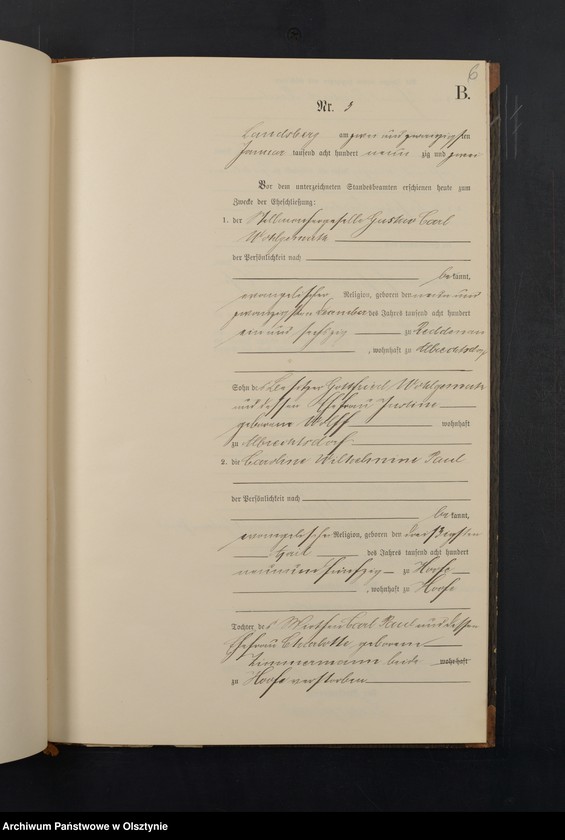 6
B.
Nr. 3
Landsberg am zwei und zwanzigsten
Januar tausend acht hundert neun zig und zwei
Vor dem unterzeichneten Standesbeamten erschienen heute zum
Zwecke der Eheschließung:
1. der Gustav Carl
Wohlgemuth
der Persönlichkeit nach
bekannt,
evangelischer Religion, geboren den und
zwanzigsten des Jahres tausend acht hundert
ein und sechszig zu Reddenau
, wohnhaft zu Albrechtsdorf
Sohn des Besitzer Gottfried Wohlgemuth
und dessen Ehefrau Justine
geborene Wolff wohnhaft
zu Albrechtsdorf
2. die Caroline Wilhelmine Paul
der Persönlichkeit nach
bekannt,
evangelische Religion, geboren den dreißigsten
des Jahres tausend acht hundert
neun und fünfzig zu Hoofe
, wohnhaft zu Hoofe
Tochter des Wirthen Carl Paul und dessen
Ehefrau Charlotte, geborene
Zimmermann beide wohnhaft
zu Hoofe verstorben
Archiwum Państwowe w Olsztynie